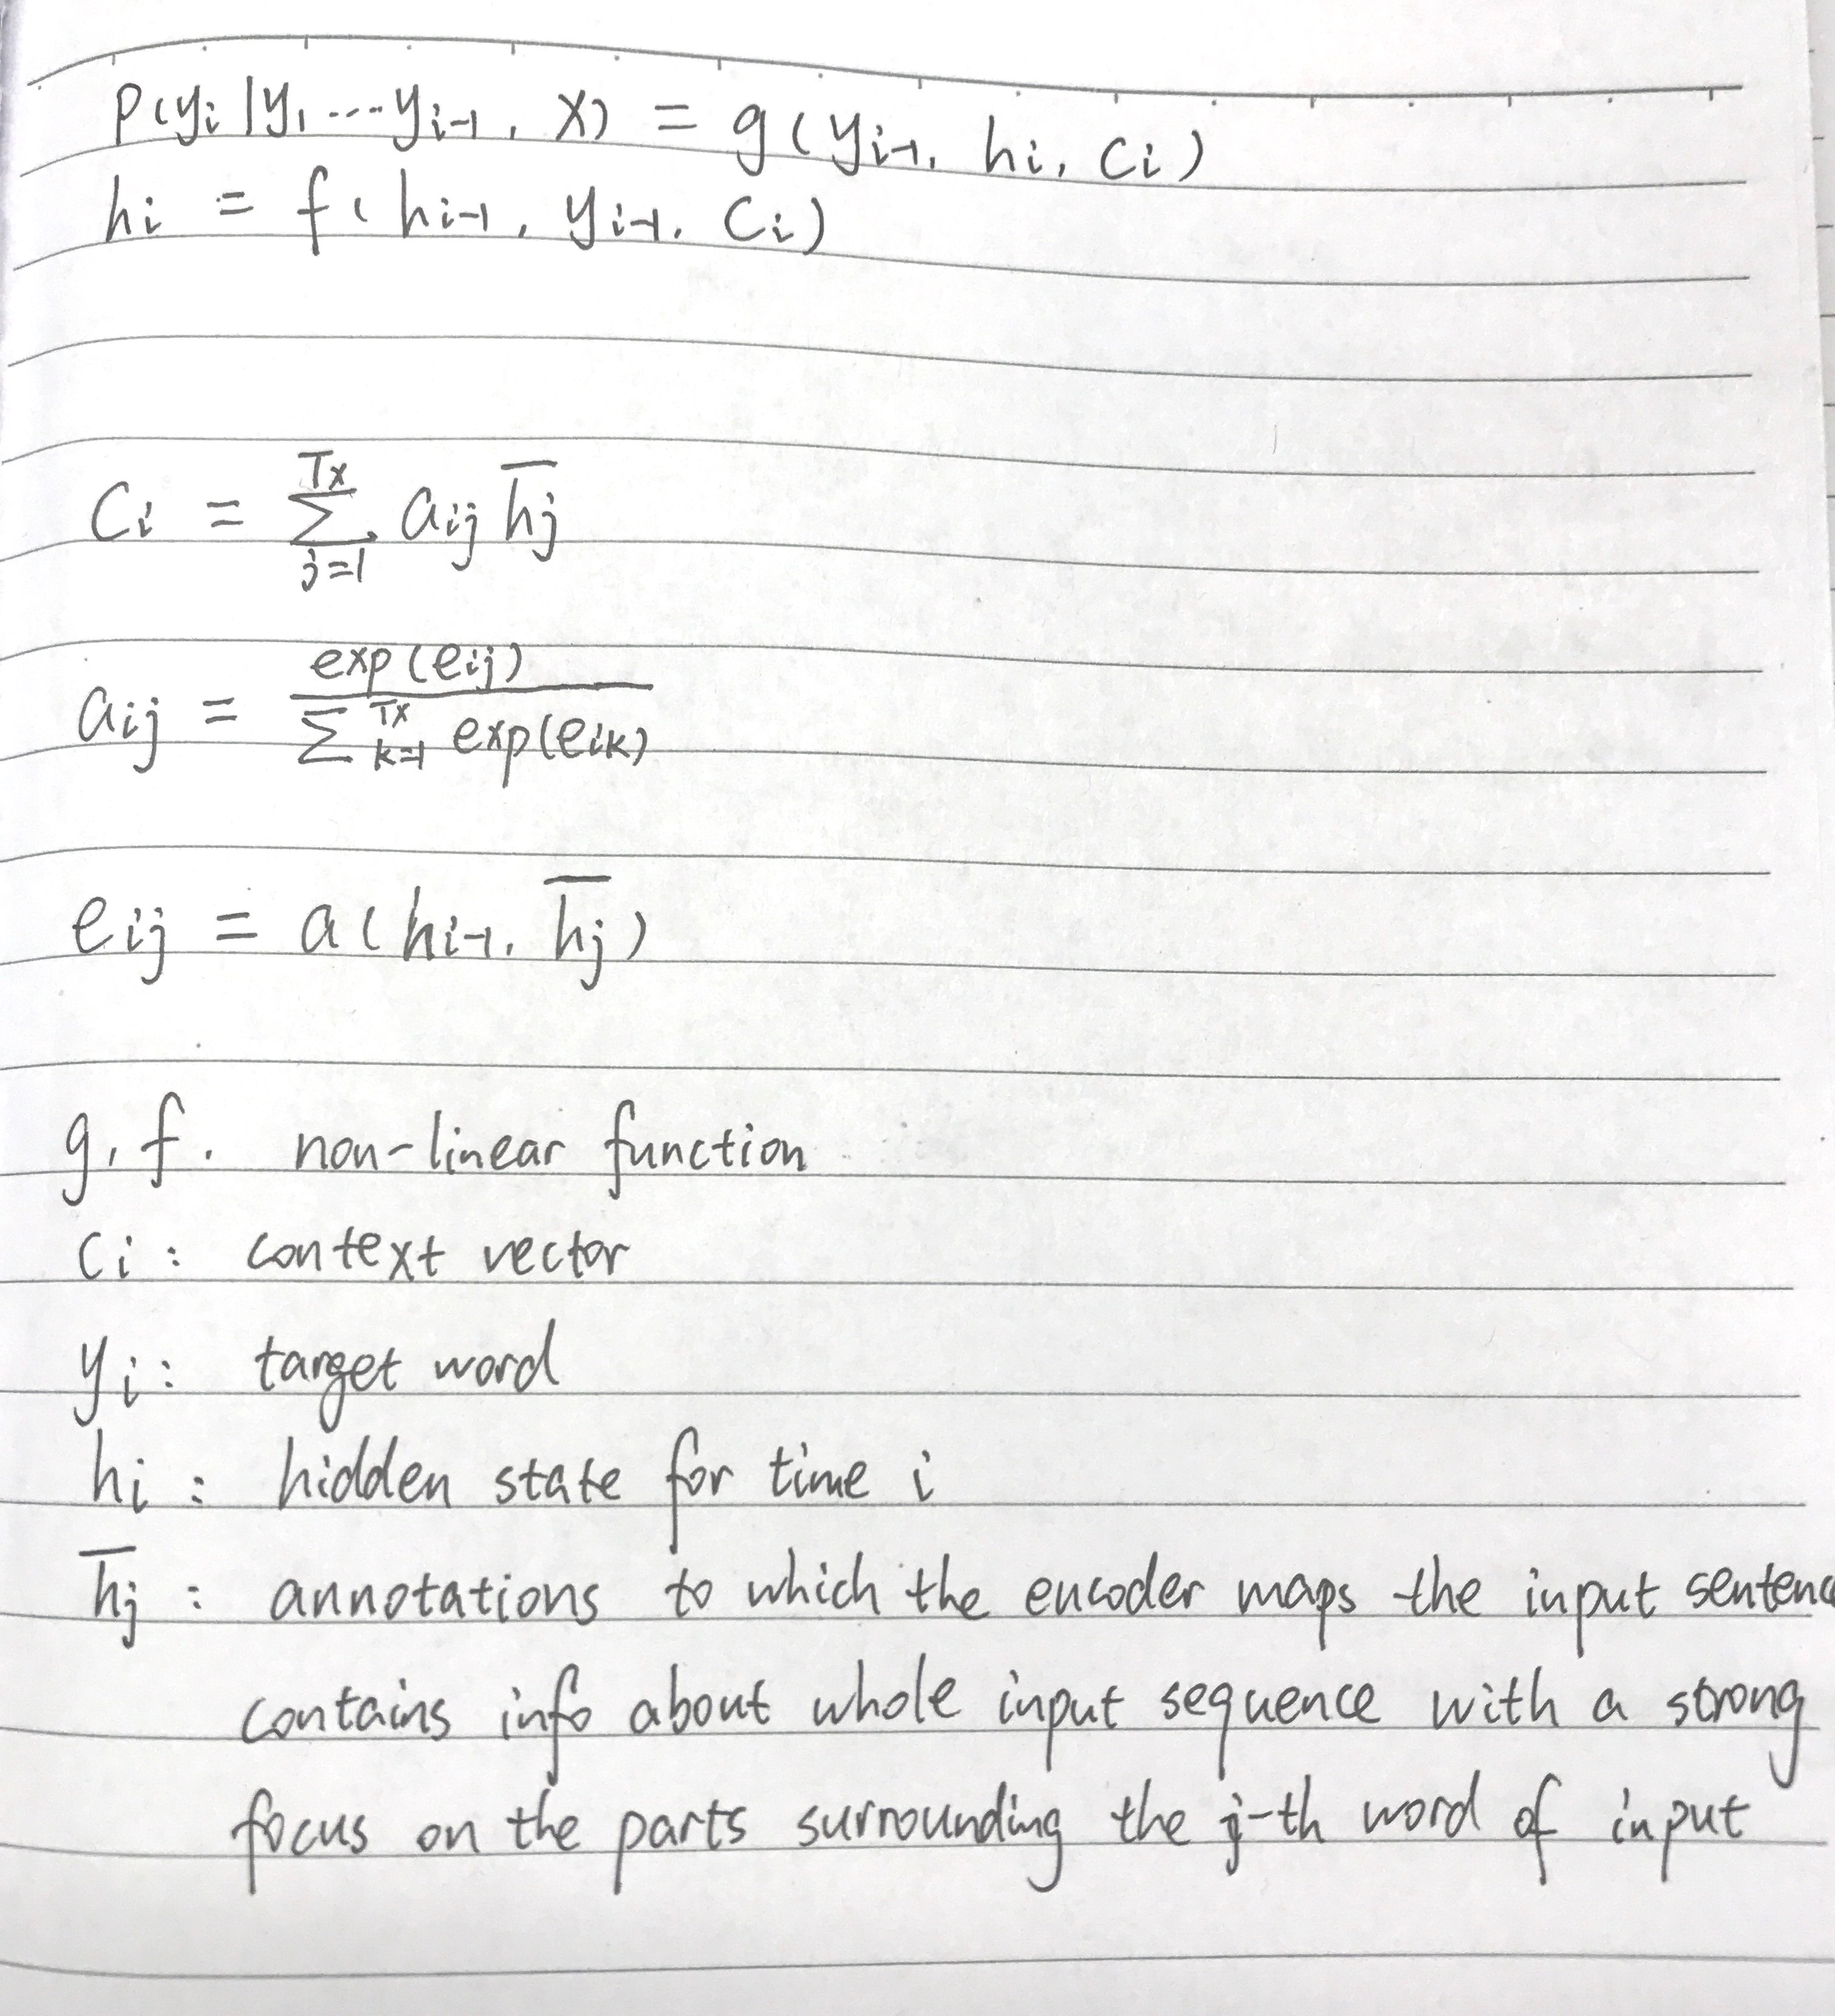 p(yi | y1 ... yi-1, x) = g(yi-1, hi, ci)
hi = f(hi-1, yi-1, ci)
ci = Σ_{j=1}^{Tx} aij h̅j
aij = exp(eij) / Σ_{k=1}^{Tx} exp(eik)
eij = a(hi-1, h̅j)
g, f. non-linear function
ci: context vector
yi: target word
hi: hidden state for time i
h̅j: annotations to which the encoder maps the input sentenc
contains info about whole input sequence with a strong
focus on the parts surrounding the j-th word of input